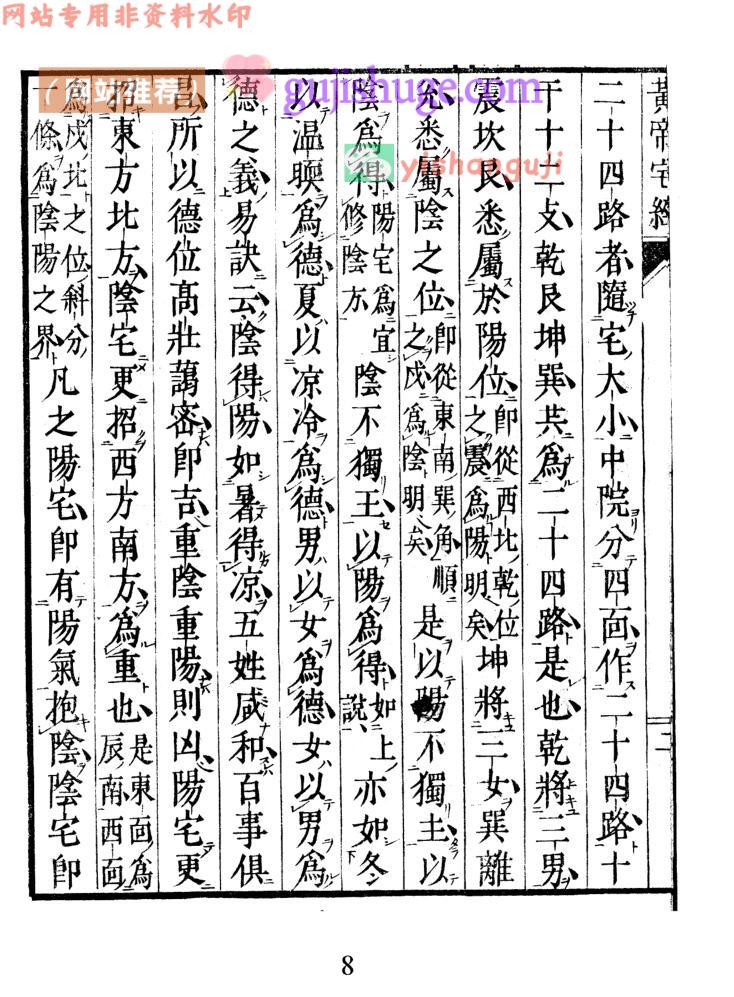 网站专用非资料水印
网站推荐
gujishuge.com
yishanguji
黃帝宅經
二
二十四路者隨宅大小中院分四面作二十四路十
干十二支乾艮坤巽共為二十四路是也乾將三男
震坎艮悉屬於陽位即從西北乾位之震為陽明矣坤將三女巽離
兌悉屬陰之位即從東南巽角順之戌為陰明矣是以陽不獨王以
陰為得陽宅為宜修陰方陰不獨王以陽為得如上說亦如冬
以温暖為德夏以凉冷為德男以女為德女以男為
德之義易訣云陰得陽如暑得凉五姓咸和百事俱
昌所以德位高壯藹密即吉重陰重陽則凶陽宅更
招東方北方陰宅更招西方南方為重也是東面為辰南西面
為戌北之位斜分一條為陰陽之界凡之陽宅即有陽氣抱陰陰宅即
8